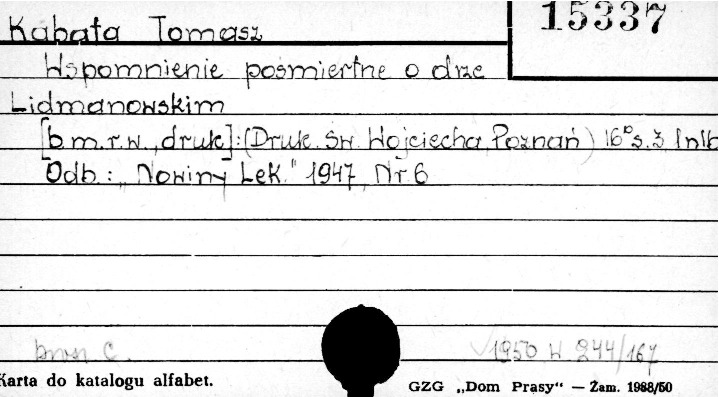 15337
Kabata Tomasz
Wspomnienie pośmiertne o drze
Lidmanowskim
[b.m.r.w., druk]: (Druk. Św. Wojciecha, Poznań) 16° s. 3, 1 nlb
Odb.: „Nowiny Lek." 1947, Nr. 6
1950 W 244/167
Karta do katalogu alfabet.
GZG „Dom Prasy“ — Żam. 1988/50